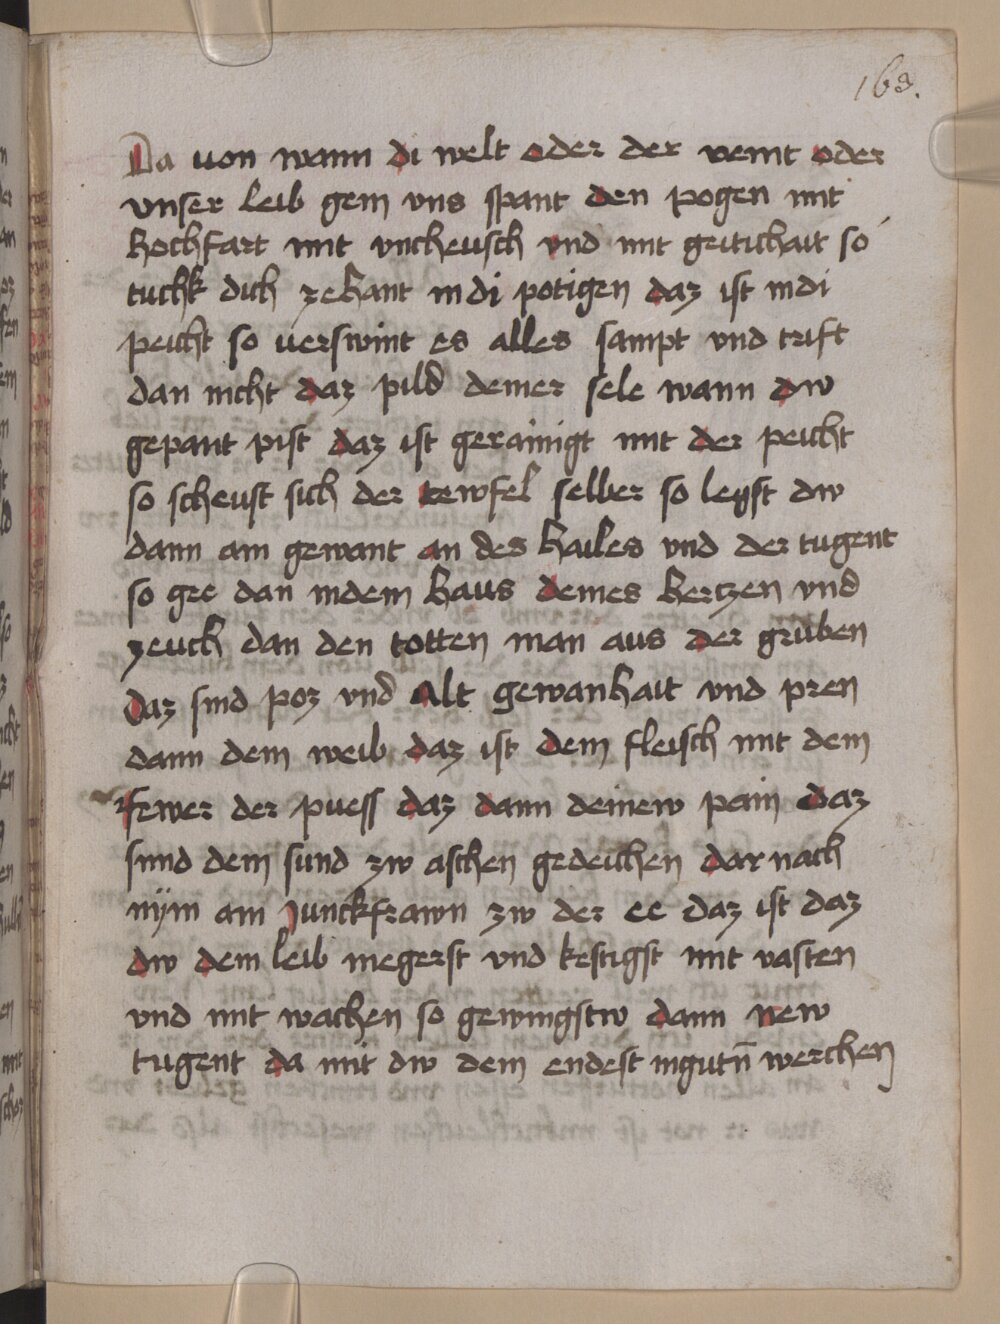 163.
Da uon wann di welt oder der veint oder
vnser leib gein vns spant den pogen mit
hochfart mit vncheusch vnd mit geitichait so
tuchk dich zehant in di potigen daz ist in di
peicht so uerswint es alles sampt vnd trift
dan nicht daz pild deiner sele wann dw
gepant pist daz ist gerainigt mit der peicht
so scheust sich der tewfel selber so legst dw
dann ain gewant an des hailes vnd der tugent
so gee dan in dein haus deines hertzen vnd
zeuch dan den totten man aus der gruben
daz sind poz vnd alt gewanhait vnd pren
dann dein weib daz ist dein fleisch mit dem
fewer der puess daz dann deinew pain daz
sind dein sund zw aschen gedeichen dar nach
nym ain junckfrawn zw der ee daz ist daz
dw dein leib megerst vnd kestigst mit vasten
vnd mit wachen so gewingstw dann new
tugent da mit dw dein endest in gutn̄ werchen